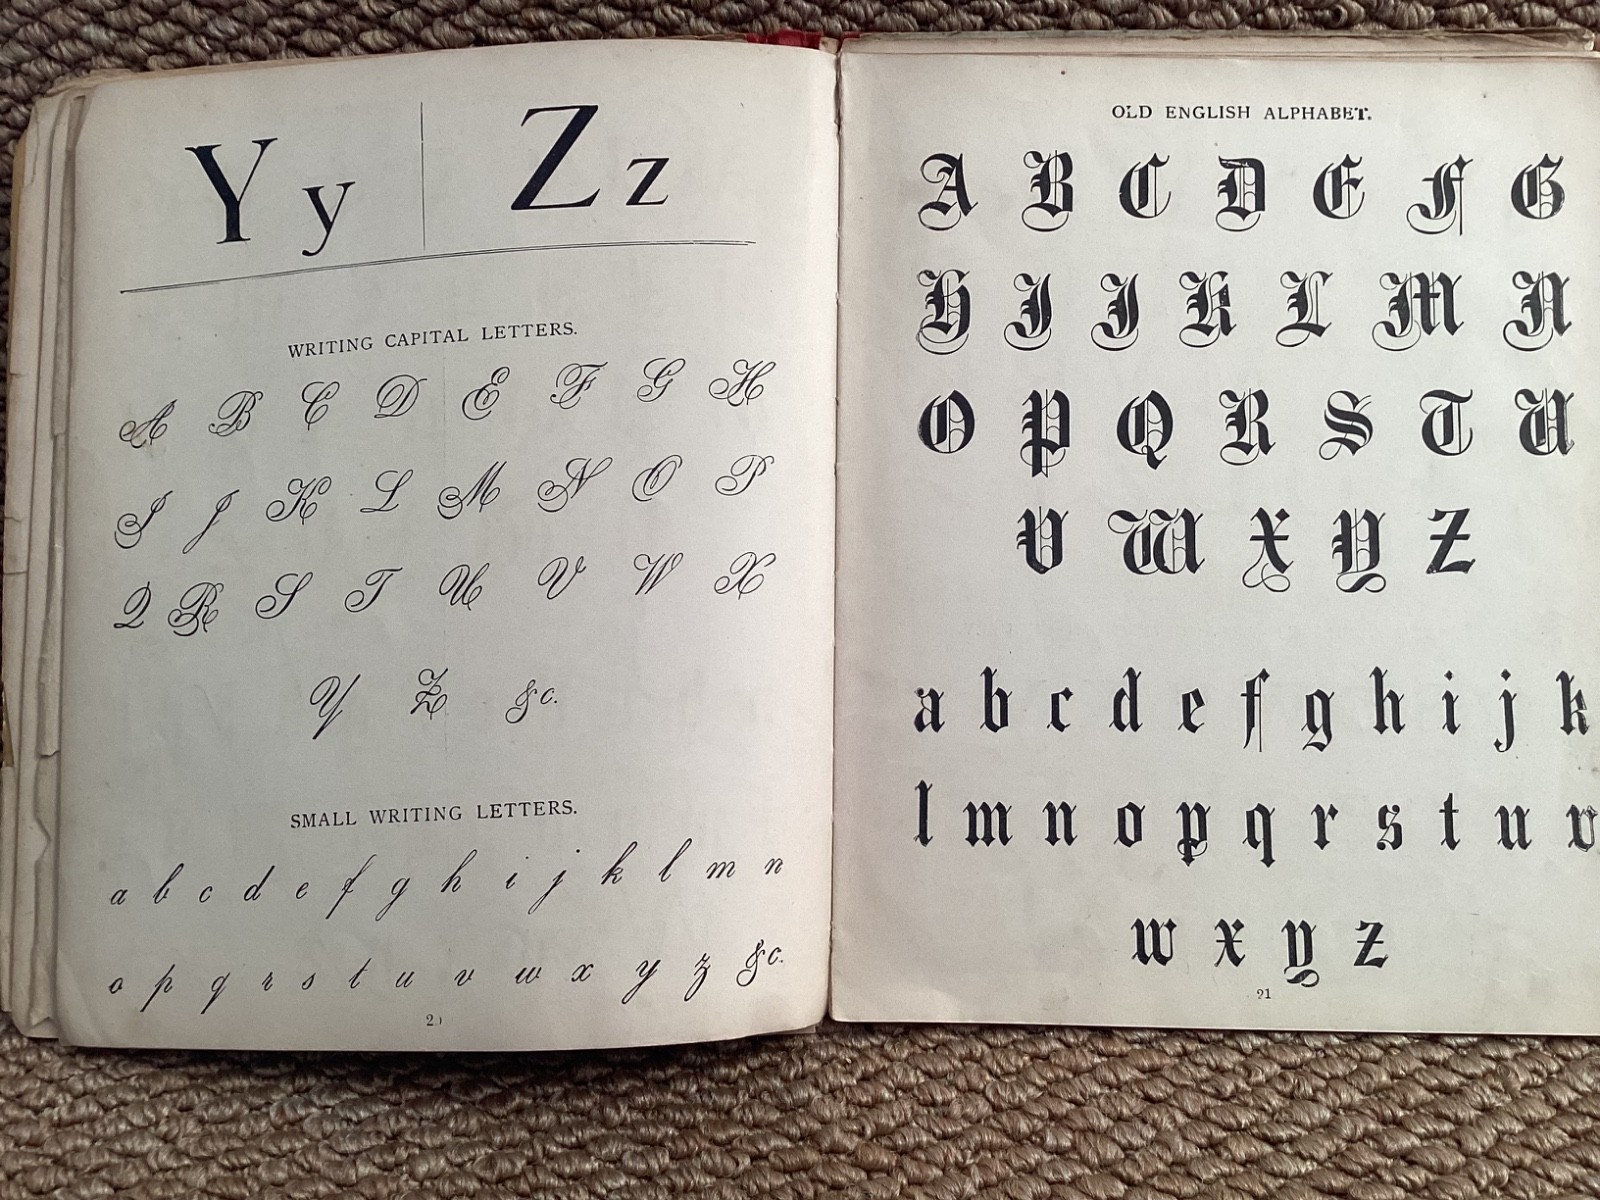 Y y Z z
WRITING CAPITAL LETTERS.
A B C D E F G H
I J K L M N O P
Q R S T U V W X
Y Z &c.
SMALL WRITING LETTERS.
a b c d e f g h i j k l m n
o p q r s t u v w x y z &c.
OLD ENGLISH ALPHABET.
A B C D E F G
H I J K L M N
O P Q R S T U
V W X Y Z
a b c d e f g h i j k
l m n o p q r s t u v
w x y z
21